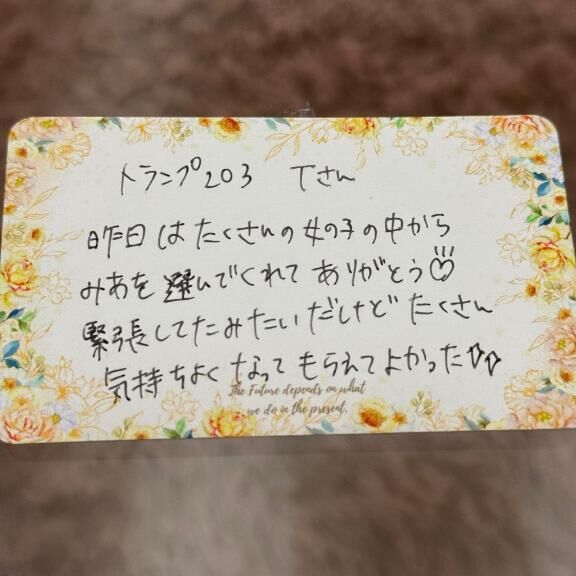 トランプ203 Tさん
昨日はたくさんの女の子の中から
みあを選んでくれてありがとう♡
緊張してたみたいだけどたくさん
気持ちよくなってもらえてよかった♡♡
The Future depends on what
we do in the present.